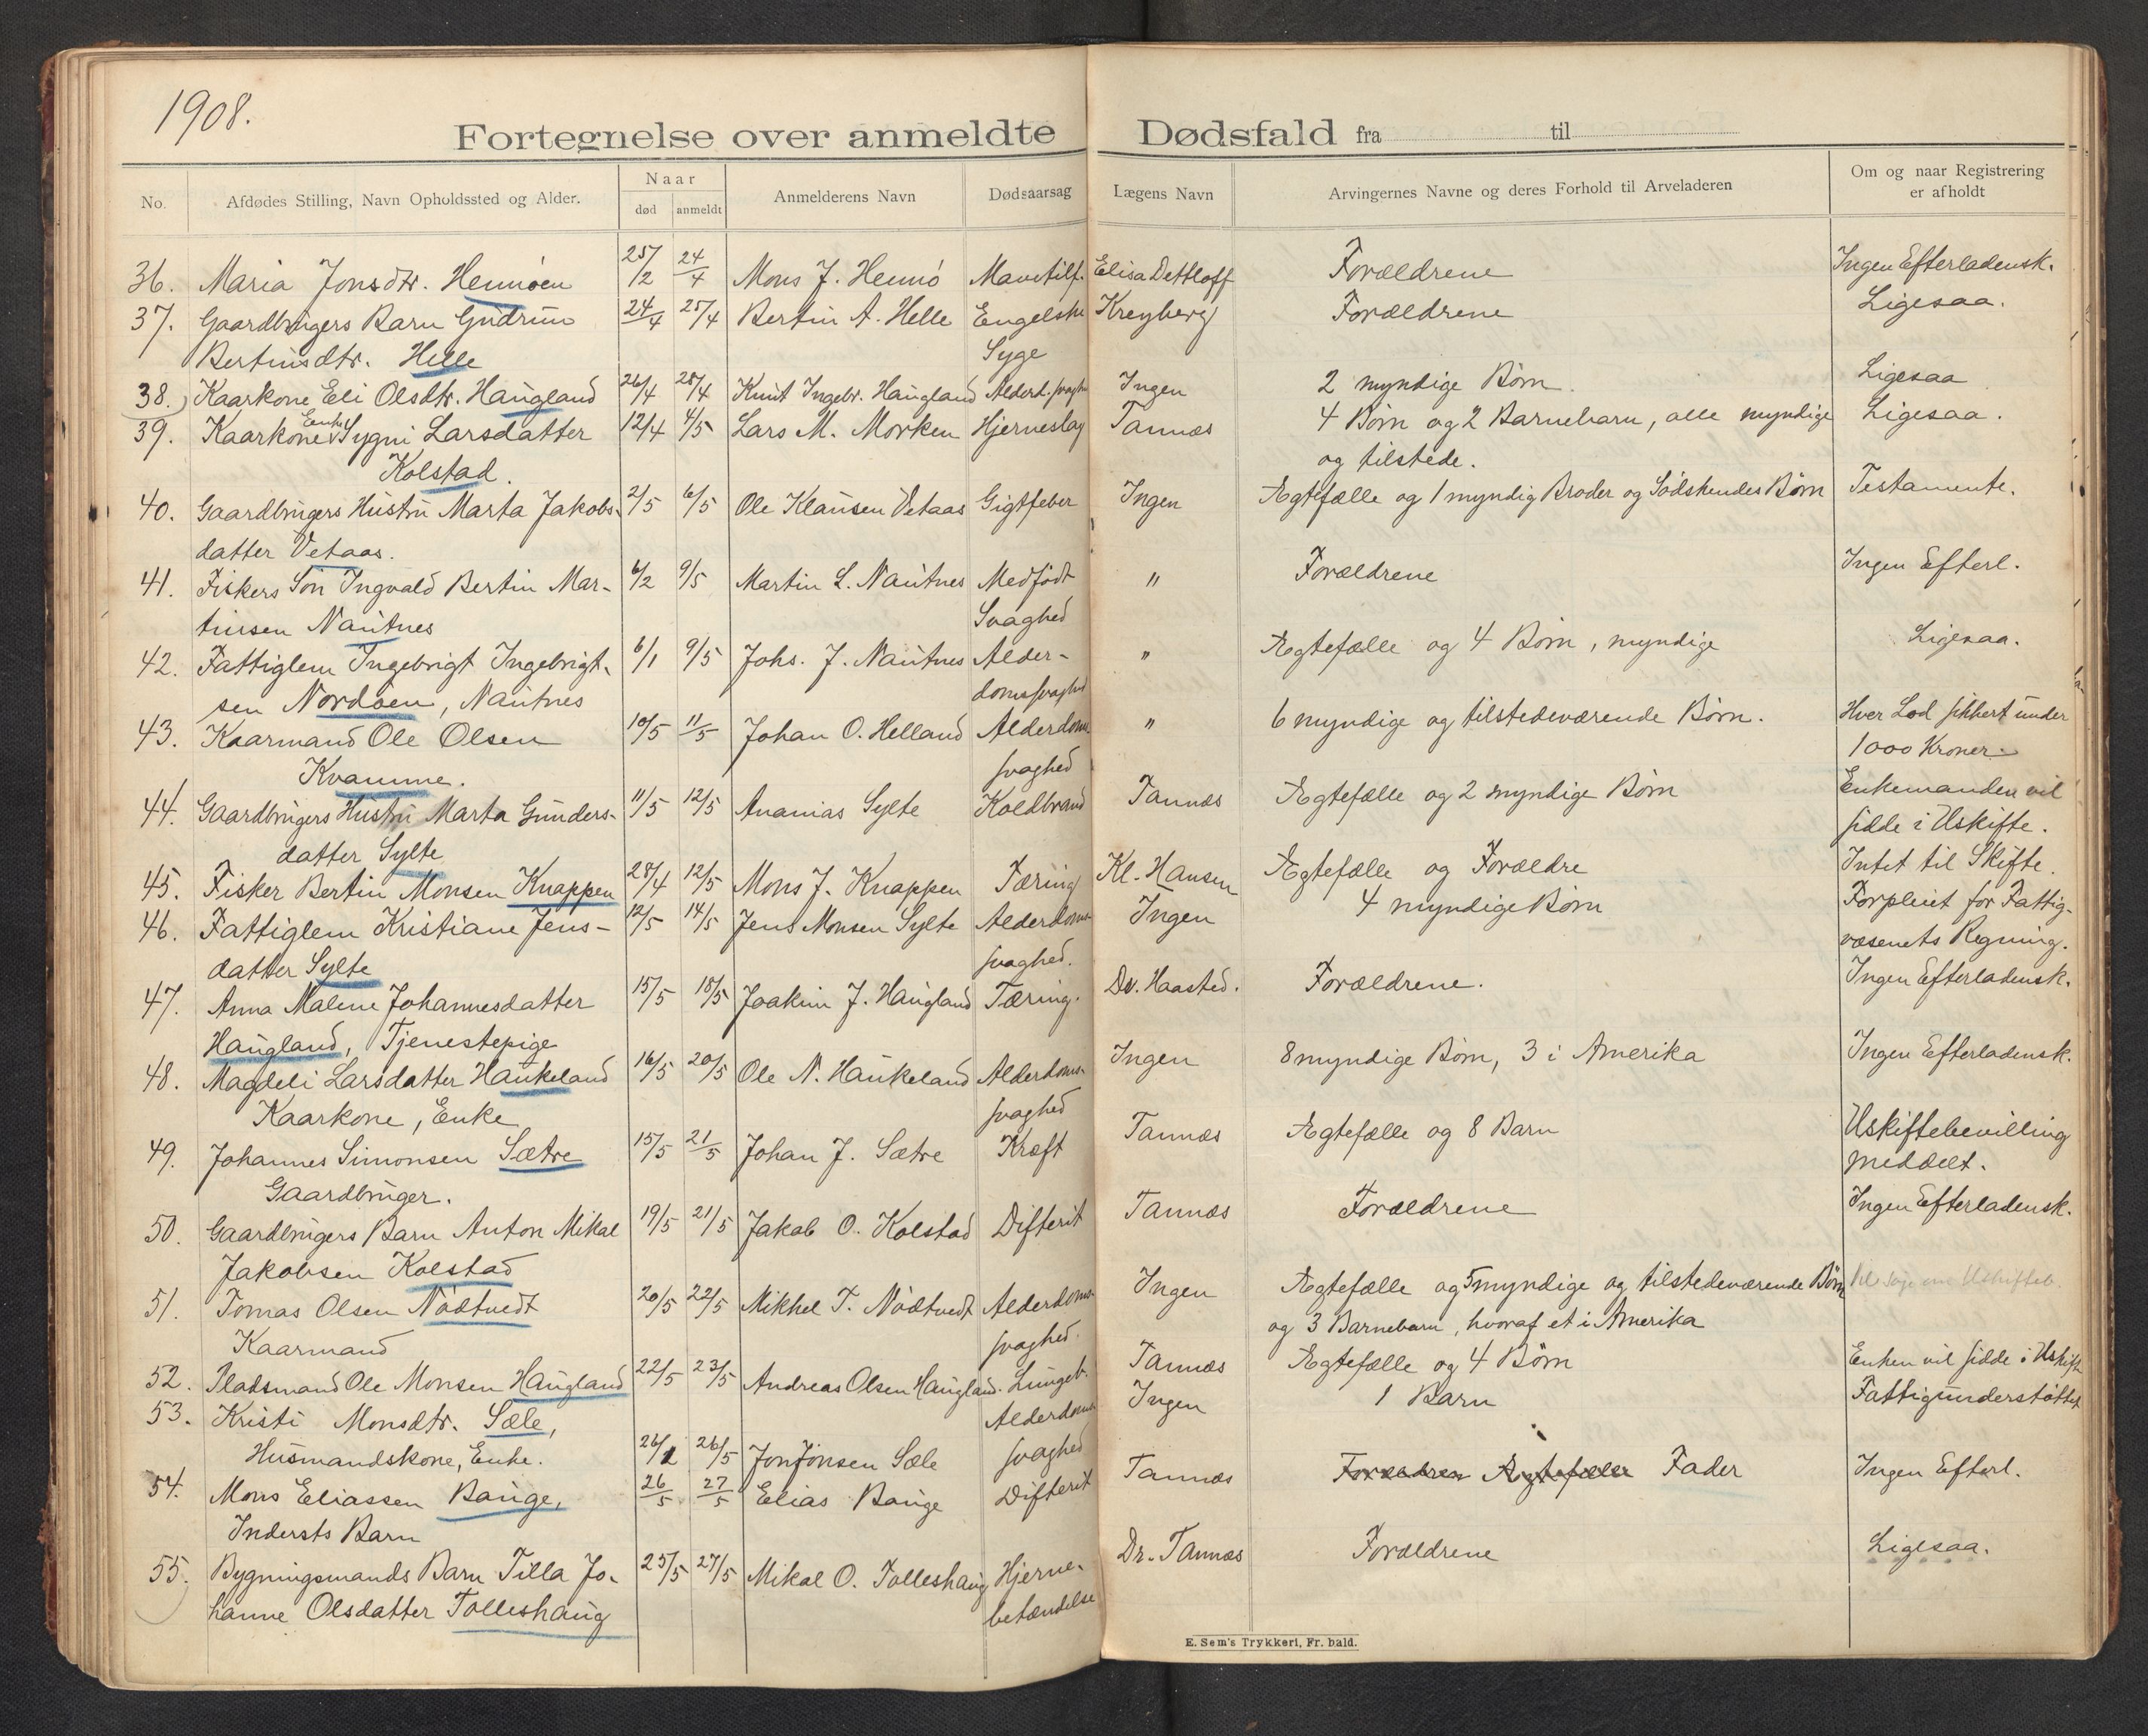 1908.
Fortegnelse over anmeldte Dødsfald fra til
No. Afdødes Stilling, Navn Opholdssted og Alder. Naar død anmeldt Anmelderens Navn Dødsaarsag Lægens Navn Arvingernes Navne og deres Forhold til Arveladeren Om og naar Registrering er afholdt
36. Maria Jonsdtr. Hennøen 25/2 24/4 Mons J. Hennö Mavetilf. Elisa Dettloff Forældrene Ingen Efterladensk.
37. Gaardbrugers Barn Gudrun 24/4 25/4 Bertin A. Helle Engelske Kreyberg Forældrene Ligesaa.
Bertinsdtr. Helle Syge
38. Kaarkone Eli Olsdtr. Haugland 26/4 28/4 Knut Ingebr. Haugland Alderd.svagh Ingen 2 myndige Börn. Ligesaa
39. Kaarkone Enke Sygni Larsdatter 12/4 4/5 Lars M. Morken Hjerneslag Tannæs 4 Börn og 2 Barnebarn, alle myndige Ligesaa.
Kolstad. og tilstede.
40. Gaardbrugers Hustru Marta Jakobs- 2/5 6/5 Ole Klausen Vetaas Gigtfeber Ingen Ægtefælle og 1 myndig Broder og Södskendes Börn Testamente.
datter Vetaas.
41. Fiskers Sön Ingvald Bertin Mar- 6/2 9/5 Martin L. Nautnes Medfödt " Forældrene Ingen Efterl.
tinsen Nautnes Svaghed
42. Fattiglem Ingebrigt Ingebrigt- 6/1 9/5 Johs. J. Nautnes Alder- " Ægtefælle og 4 Börn, myndige Ligesaa.
sen Nordöen, Nautnes domssvaghed
43. Kaarmand Ole Olsen 10/5 11/5 Johan O. Helland Alderdoms " 6 myndige og tilstedeværende Börn. Hver Lod sikkert under
Kvamme. svaghed 1000 Kroner.
44. Gaardbrugers Hustru Marta Gunders- 11/5 12/5 Ananias Sylte Koldbrand Tannæs Ægtefælle og 2 myndige Börn Enkemanden vil
datter Sylte sidde i Uskifte.
45. Fisker Bertin Monsen Knappen 28/4 12/5 Mons J. Knappen Tæring Kl. Hansen Ægtefælle og Forældre Intet til Skifte.
46. Fattiglem Kristiane Jens- 12/5 14/5 Jens Monsen Sylte Alderdoms- Ingen 4 myndige Börn Forpleiet for Fattig-
datter Sylte svaghed. væsenets Regning.
47. Anna Maline Johannesdatter 15/5 18/5 Joakim J. Haugland Tæring. Dr. Haasted. Forældrene. Ingen Efterladensk.
Haugland, Tjenestepige
48. Magdeli Larsdatter Haukeland 16/5 20/5 Ole N. Haukeland Alderdoms- Ingen 8 myndige Börn, 3 i Amerika Ingen Efterladensk.
Kaarkone, Enke svaghed
49. Johannes Simonsen Sætre 15/5 21/5 Johan J. Sætre Kræft Tannæs Ægtefælle og 8 Barn Uskiftebevilling
Gaardbruger. meddelt.
50. Gaardbrugers Barn Anton Mikal 19/5 21/5 Jakob O. Kolstad Difterit Tannæs Forældrene Ingen Efterladensk.
Jakobsen Kolstad
51. Tomas Olsen Nödtvedt 20/5 22/5 Mikkel T. Nödtvedt Alderdoms- Ingen Ægtefælle og 5 myndige og tilstedeværende Börn
Kaarmand svaghed. og 3 Barnebarn, hvoraf et i Amerika
52. Pladsmand Ole Monsen Haugland 22/5 23/5 Andreas Olsen Haugland. Lungeb. Tannæs Ægtefælle og 4 Börn Enken vil sidde i Uskifte
53. Kristi Monsdtr. Sæle, Alderdoms Ingen 1 Barn Fattigunderstöttet
Husmandskone, Enke. 26/2 26/5 Jon Jonsen Sæle svaghed
54. Mons Eliassen Bauge, 26/5 27/5 Elias Bauge Difterit Tannæs Forældrene Ægtefæller Fader Ingen Efterl.
Indersts Barn
55. Bygningsmands Barn Tilla Jo- 25/5 27/5 Mikal O. Tolleshaug Hjerne- Dr. Tannæs Forældrene Ligesaa.
hanne Olsdatter Tolleshaug betændelse
E. Sem's Trykkeri, Fr. hald.